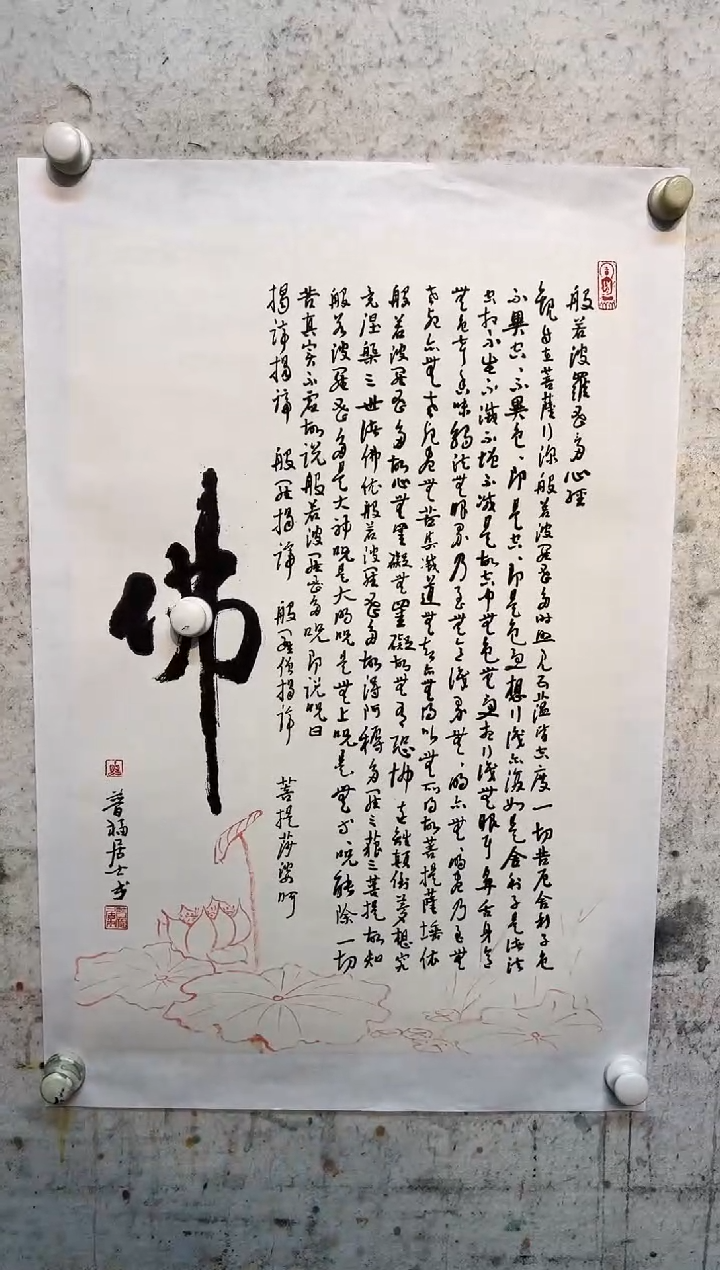 般若波羅蜜多心經
觀自在菩薩行深般若波羅蜜多時照見五蘊皆空度一切苦厄舍利子色
不異空、不異色、即是空、即是色受想行識亦復如是舍利子是諸法
空相不生不滅不增不減是故空中無色無受想行識無眼耳鼻舌身意
無色聲香味觸法無眼界乃至無意識界無、明亦無、明盡乃至無
老死亦無老死盡無苦集滅道無智亦無得以無所得故菩提薩埵依
般若波羅蜜多故心無罣礙無罣礙故無有恐怖遠離顛倒夢想究
竟涅槃三世諸佛依般若波羅蜜多故得阿耨多羅三藐三菩提故知
般若波羅蜜多是大神呪是大明呪是無上呪是無等、呪能除一切
苦真實不虛故說般若波羅蜜多呪即說呪曰
揭諦揭諦 般羅揭諦 般羅僧揭諦 菩提莎婆呵
佛
普福居士书